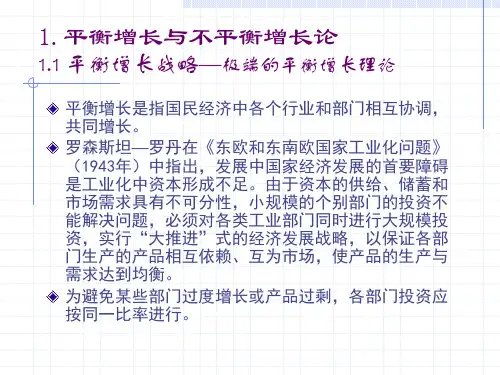 1.平衡增长与不平衡增长论
1.1 平衡增长战略—极端的平衡增长理论
平衡增长是指国民经济中各个行业和部门相互协调，
共同增长。
罗森斯坦—罗丹在《东欧和东南欧国家工业化问题》
（1943年）中指出，发展中国家经济发展的首要障碍
是工业化中资本形成不足。由于资本的供给、储蓄和
市场需求具有不可分性，小规模的个别部门的投资不
能解决问题，必须对各类工业部门同时进行大规模投
资，实行“大推进”式的经济发展战略，以保证各部
门生产的产品相互依赖、互为市场，使产品的生产与
需求达到均衡。
为避免某些部门过度增长或产品过剩，各部门投资应
按同一比率进行。